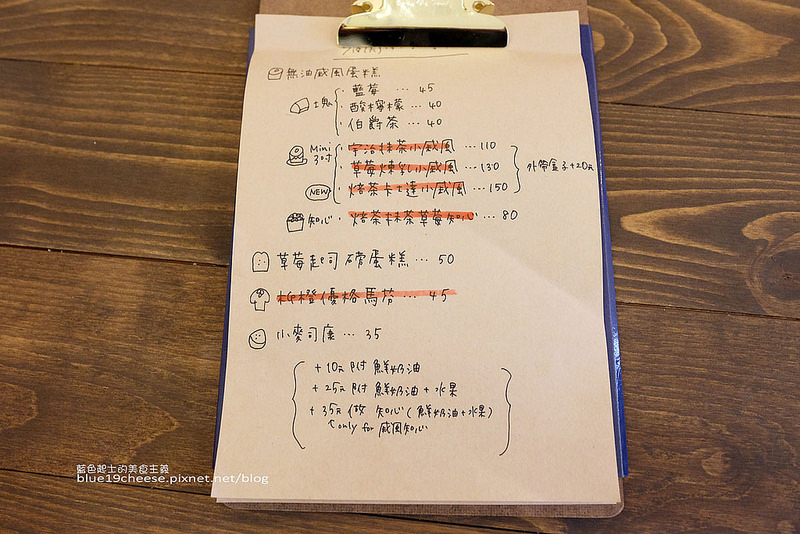 無油威風蛋糕
土塊 藍莓 … 45
酸檸檬 … 40
伯爵茶 … 40
Mini 3吋 宇治抹茶小威風 … 110
草莓煉乳小威風 … 130
外帶盒子+20元
NEW 焙茶卡士達小威風 … 150
知心 焙茶抹茶草莓知心 … 80
草莓起司磅蛋糕 … 50
柳橙優格馬芬 … 45
小麥司康 … 35
+10元 附 鮮奶油
+25元 附 鮮奶油+水果
+35元 做 知心(鮮奶油+水果)
↑only for 威風知心
藍色起士的美食主義
blue19cheese.pixnet.net/blog